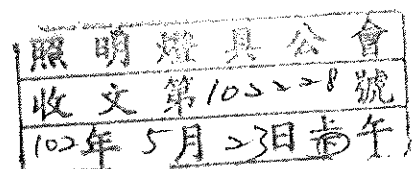 照明燈具公會
收文第102228號
102年5月23日 午